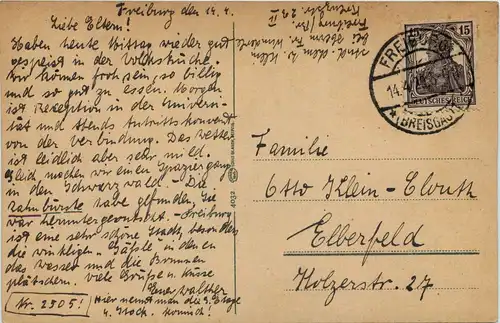 Freiburg den 14. 4.
Liebe Eltern!
Haben heute Mittag wieder gut
gespeist in der Volksküche.
Wir können froh sein, so billig
und so gut zu essen. Morgen
ist Rezeption in der Univers-
tät und Abends Antrittskonvent
von der Verbindung. Das Wetter
ist leidlich aber sehr mild.
Gleich machen wir einen Spaziergang
in den Schwarzwald. Die
Zahnbürste habe gefunden, sie
war heruntergerutscht. Freiburg
ist eine sehr schöne Stadt, besonders
die winkligen Gäßle in denen
das Wasser und die Brunnen
plätschern. Viele Grüße u. Küsse
Euer Walther
Nr. 2305!
Hier nennt man die 3. Etage
4. Stock. komisch!
stud. chem. W. Klein
bei
Freiburg/Br.
4032
15
DEUTSCHES REICH
FREIBURG
14.4.
(BREISGAU)
Familie
Otto Klein-
Elberfeld
Holzerstr. 27